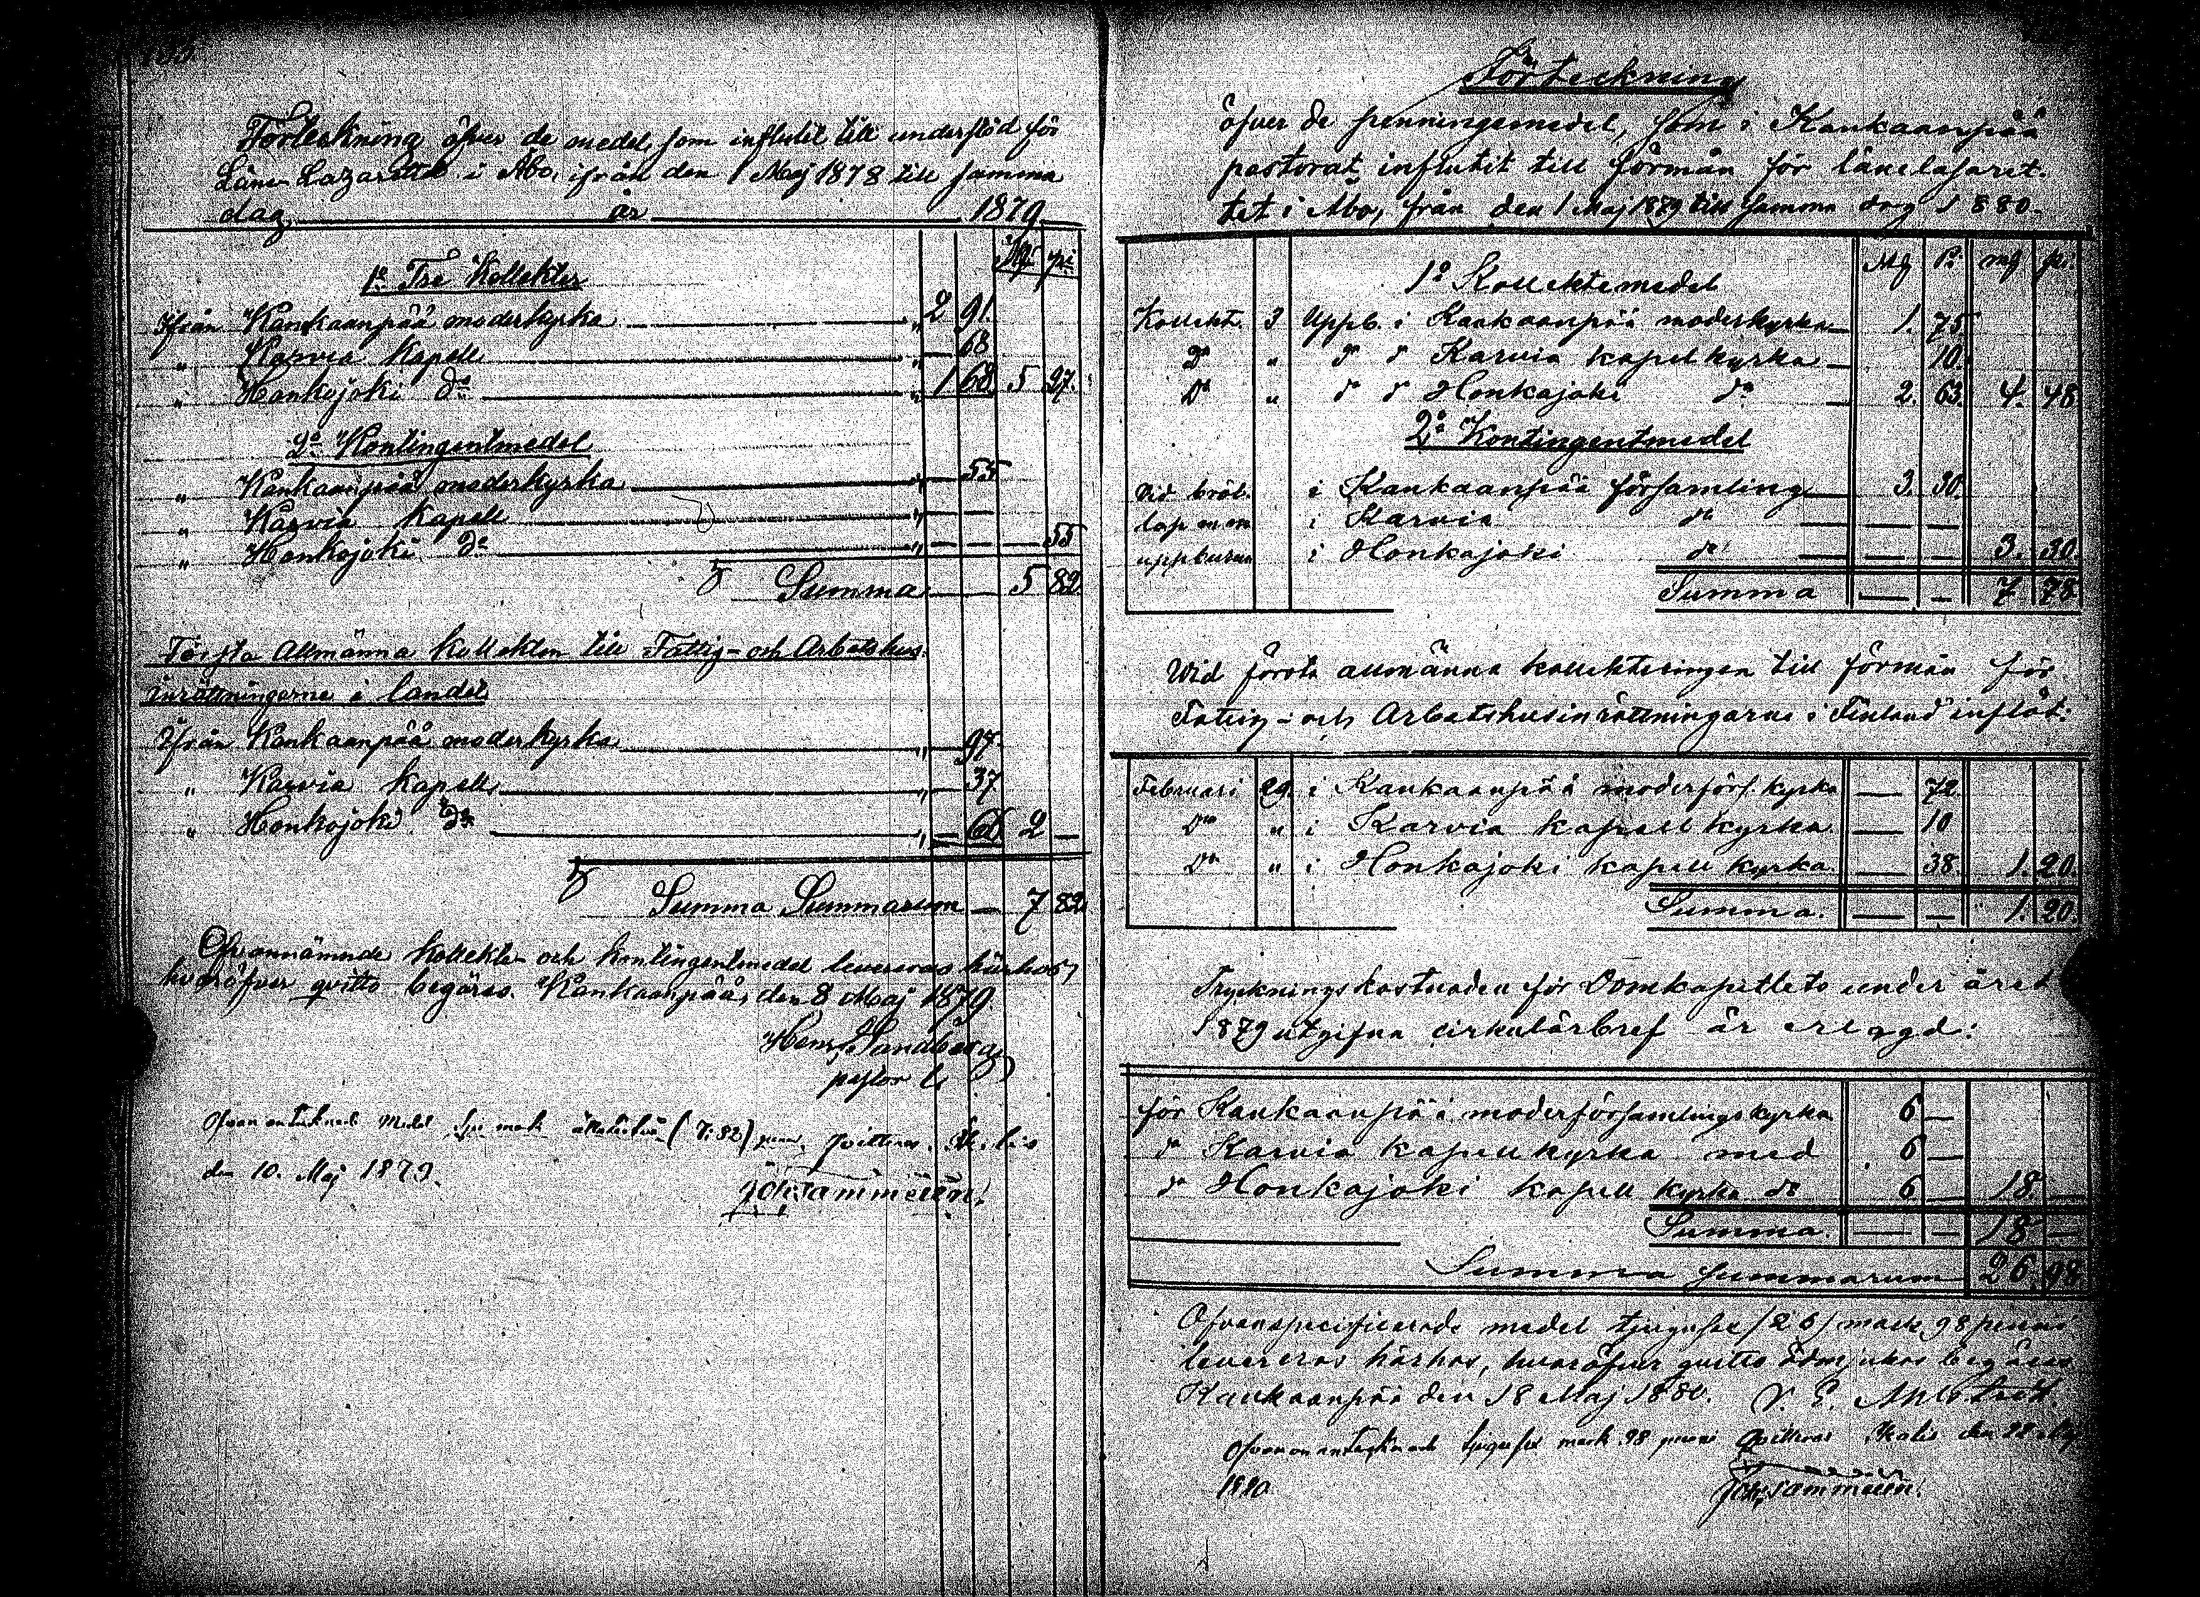 Förteckning öfver de medel, som influtit till understöd för
Läns Lazarettet i Åbo, ifrån den 1 Maj 1878 till samma
dag år 1879
Mk pi
1o Tre Kollekter
Ifrån Kankaanpää moderkyrka " 2 91
" Karvia Kapell " — 68
" Honkojoki do " 1 68 5 27.
2o Kontingentmedel
" Kankaanpää moderkyrka " — 55
" Karvia Kapell " — —
" Honkojoki do " — — — 55
Summa — 5 82
Första Allmänna Kollekten till Fattig- och Arbetshus-
inrättningarne i landet
Ifrån Kankaanpää moderkyrka " — 97
" Karvia Kapell " — 37
" Honkojoki do " — 66 2 —
Summa Summarum — 7 82
Ofvannämnde kollekt- och kontingentmedel levereras härhos,
hvaröfver qvitto begäres. Kankaanpää, den 8 Maj 1879.
Henr. Sandberg
pastor
Ofvan antecknade medel sju mark åttatiotvå (7:82) penni, qvitteras.
den 10. Maj 1879.
Förteckning
öfver de penningemedel, som i Kankaanpää
pastorat influtit till förmån för länelasaret-
tet i Åbo, från den 1 Maj 1879 till samma dag 1880.
Mk Pi mk pi
1o Kollektemedel
Kollekt. 3 Uppb. i Kankaanpää moderkyrka — 1. 75
Do " do do Karvia kapellkyrka — 10.
Do " do do Honkajoki do — 2. 63. 4. 48
2o Kontingentmedel
Vid bröl- i Kankaanpää församling — 3. 30
lop m m i Karvia do — — —
uppburna i Honkajoki do — — — 3. 30.
Summa — — 7 78
Wid första allmänna kollekteringen till förmån för
Fattig- och Arbetshusinrättningarne i Finland inflöt:
Februari 29. i Kankaanpää moderförs. kyrka — 72.
Do " i Karvia kapellkyrka — 10
Do " i Honkajoki kapell kyrka. — 38 1. 20.
Summa. — — 1. 20.
Tryckningskostnaden för Domkapitlets under året
1879 utgifna cirkulärbref är erlagd:
för Kankaanpää moderförsamlingskyrka 6 —
do Karvia kapellkyrka med 6 —
do Honkajoki kapell kyrka do 6 — 18 —
Summa. — — 18 —
Summa summarum 26 98
Ofvanspecificerade medel tjugusex (26) mark 98 penni
levereras härhos, hvaröfver qvitto ödmjukas begäres
Kankaanpää den 18 Maj 1880.
Ofvan antecknade tjugusex mark 98 penni qvitteras Ikalis den 22 Maj
1880